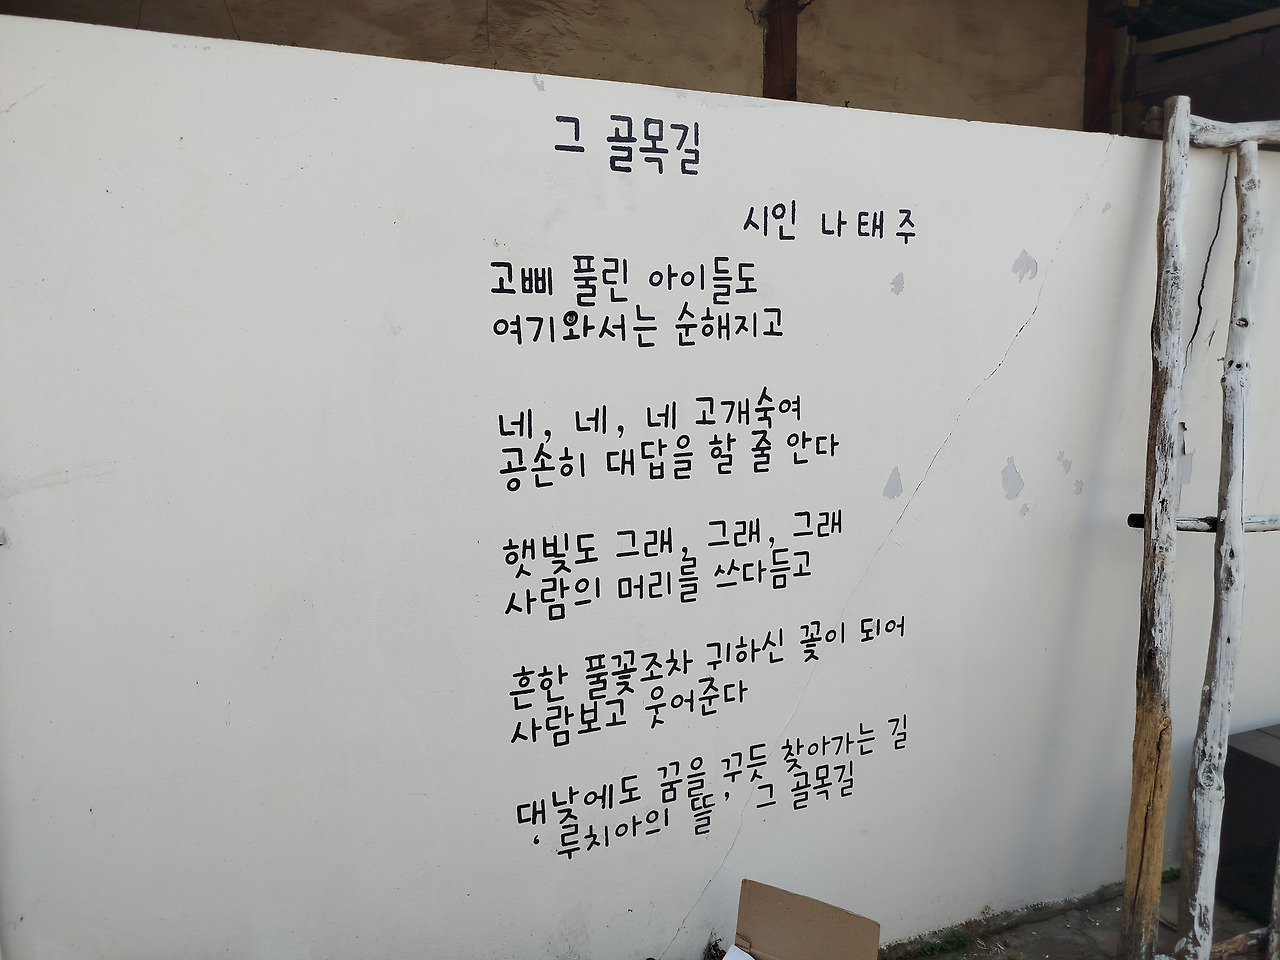 그 골목길
시인 나태주
고삐 풀린 아이들도
여기와서는 순해지고
네, 네, 네 고개숙여
공손히 대답을 할 줄 안다
햇빛도 그래, 그래, 그래
사람의 머리를 쓰다듬고
흔한 풀꽃조차 귀하신 꽃이 되어
사람보고 웃어준다
댕낮에도 꿈을 꾸듯 찾아가는 길
'루치아의 뜰' 그 골목길